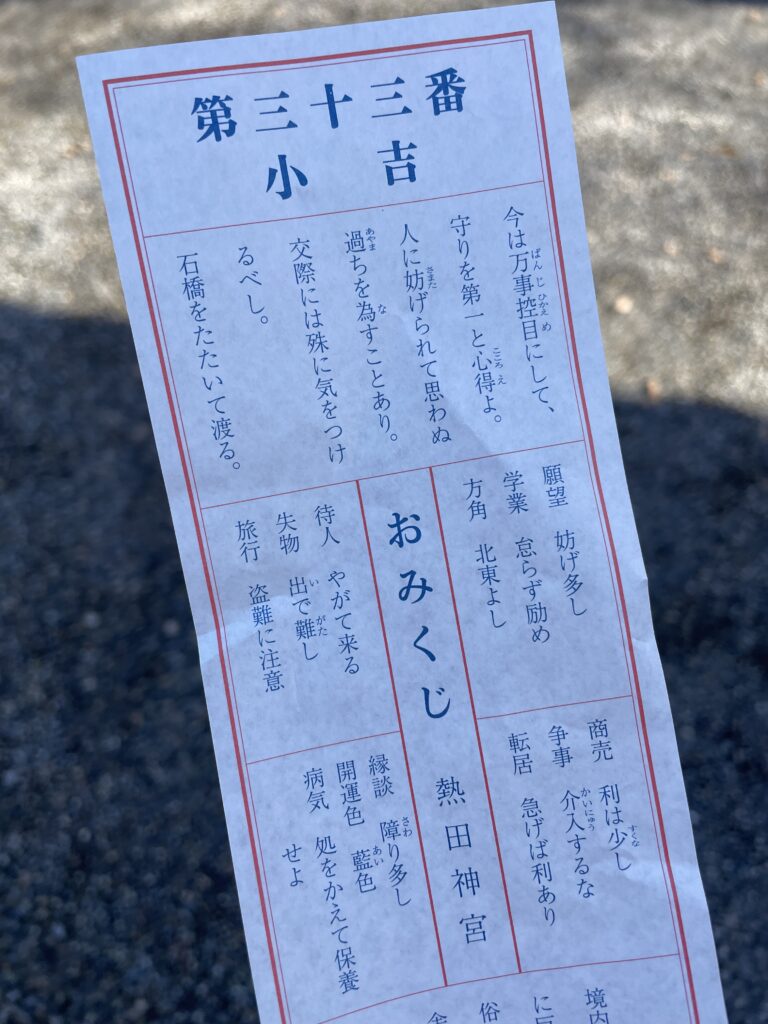 第三十三番
小吉
今は万事控目にして、
守りを第一と心得よ。
人に妨げられて思わぬ
過ちを為すことあり。
交際には殊に気をつけ
るべし。
石橋をたたいて渡る。
願望 妨げ多し
学業 怠らず励め
方角 北東よし
おみくじ 熱田神宮
待人 やがて来る
失物 出で難し
旅行 盗難に注意
商売 利は少し
争事 介入するな
転居 急げば利あり
縁談 障り多し
開運色 藍色
病気 処をかえて保養
せよ
境内
に
俗